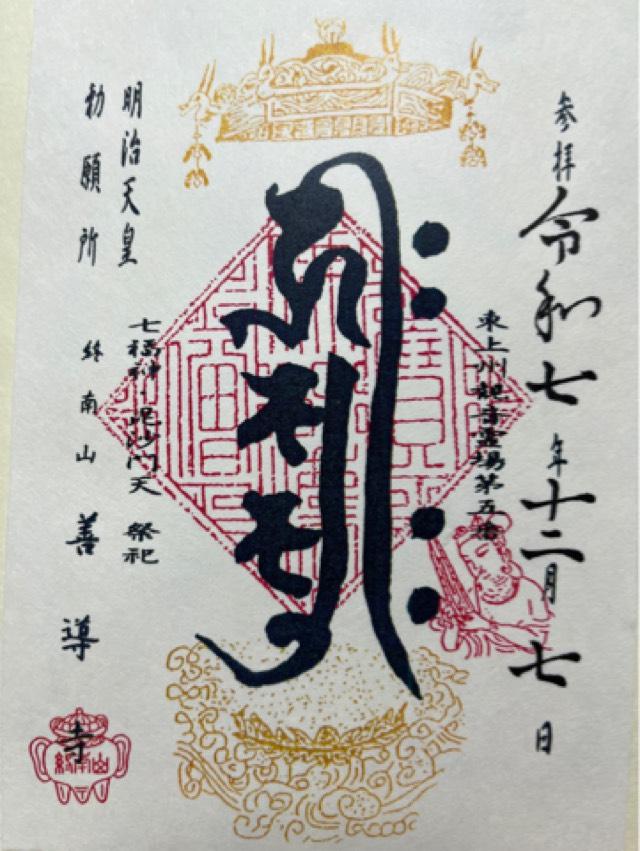 参拝 令和七年十二月七日
東上州観音霊場第五拾
明治天皇
勅願所
七福神・毘沙門天 祭祀
終南山 善導寺